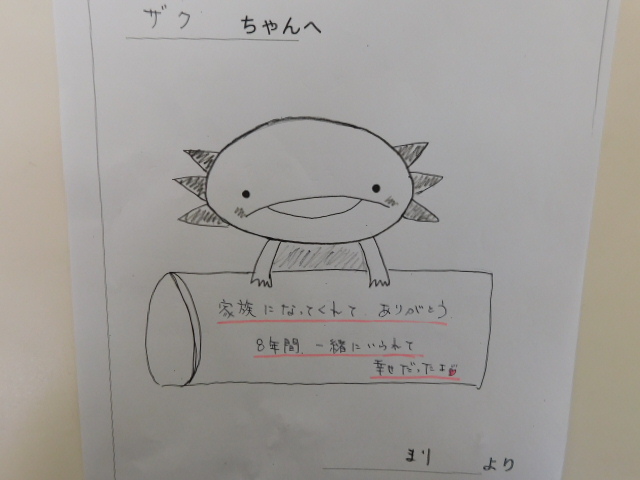 ザク ちゃんへ
家族になってくれて ありがとう
8年間、一緒にいられて
幸せだったよ
まり より